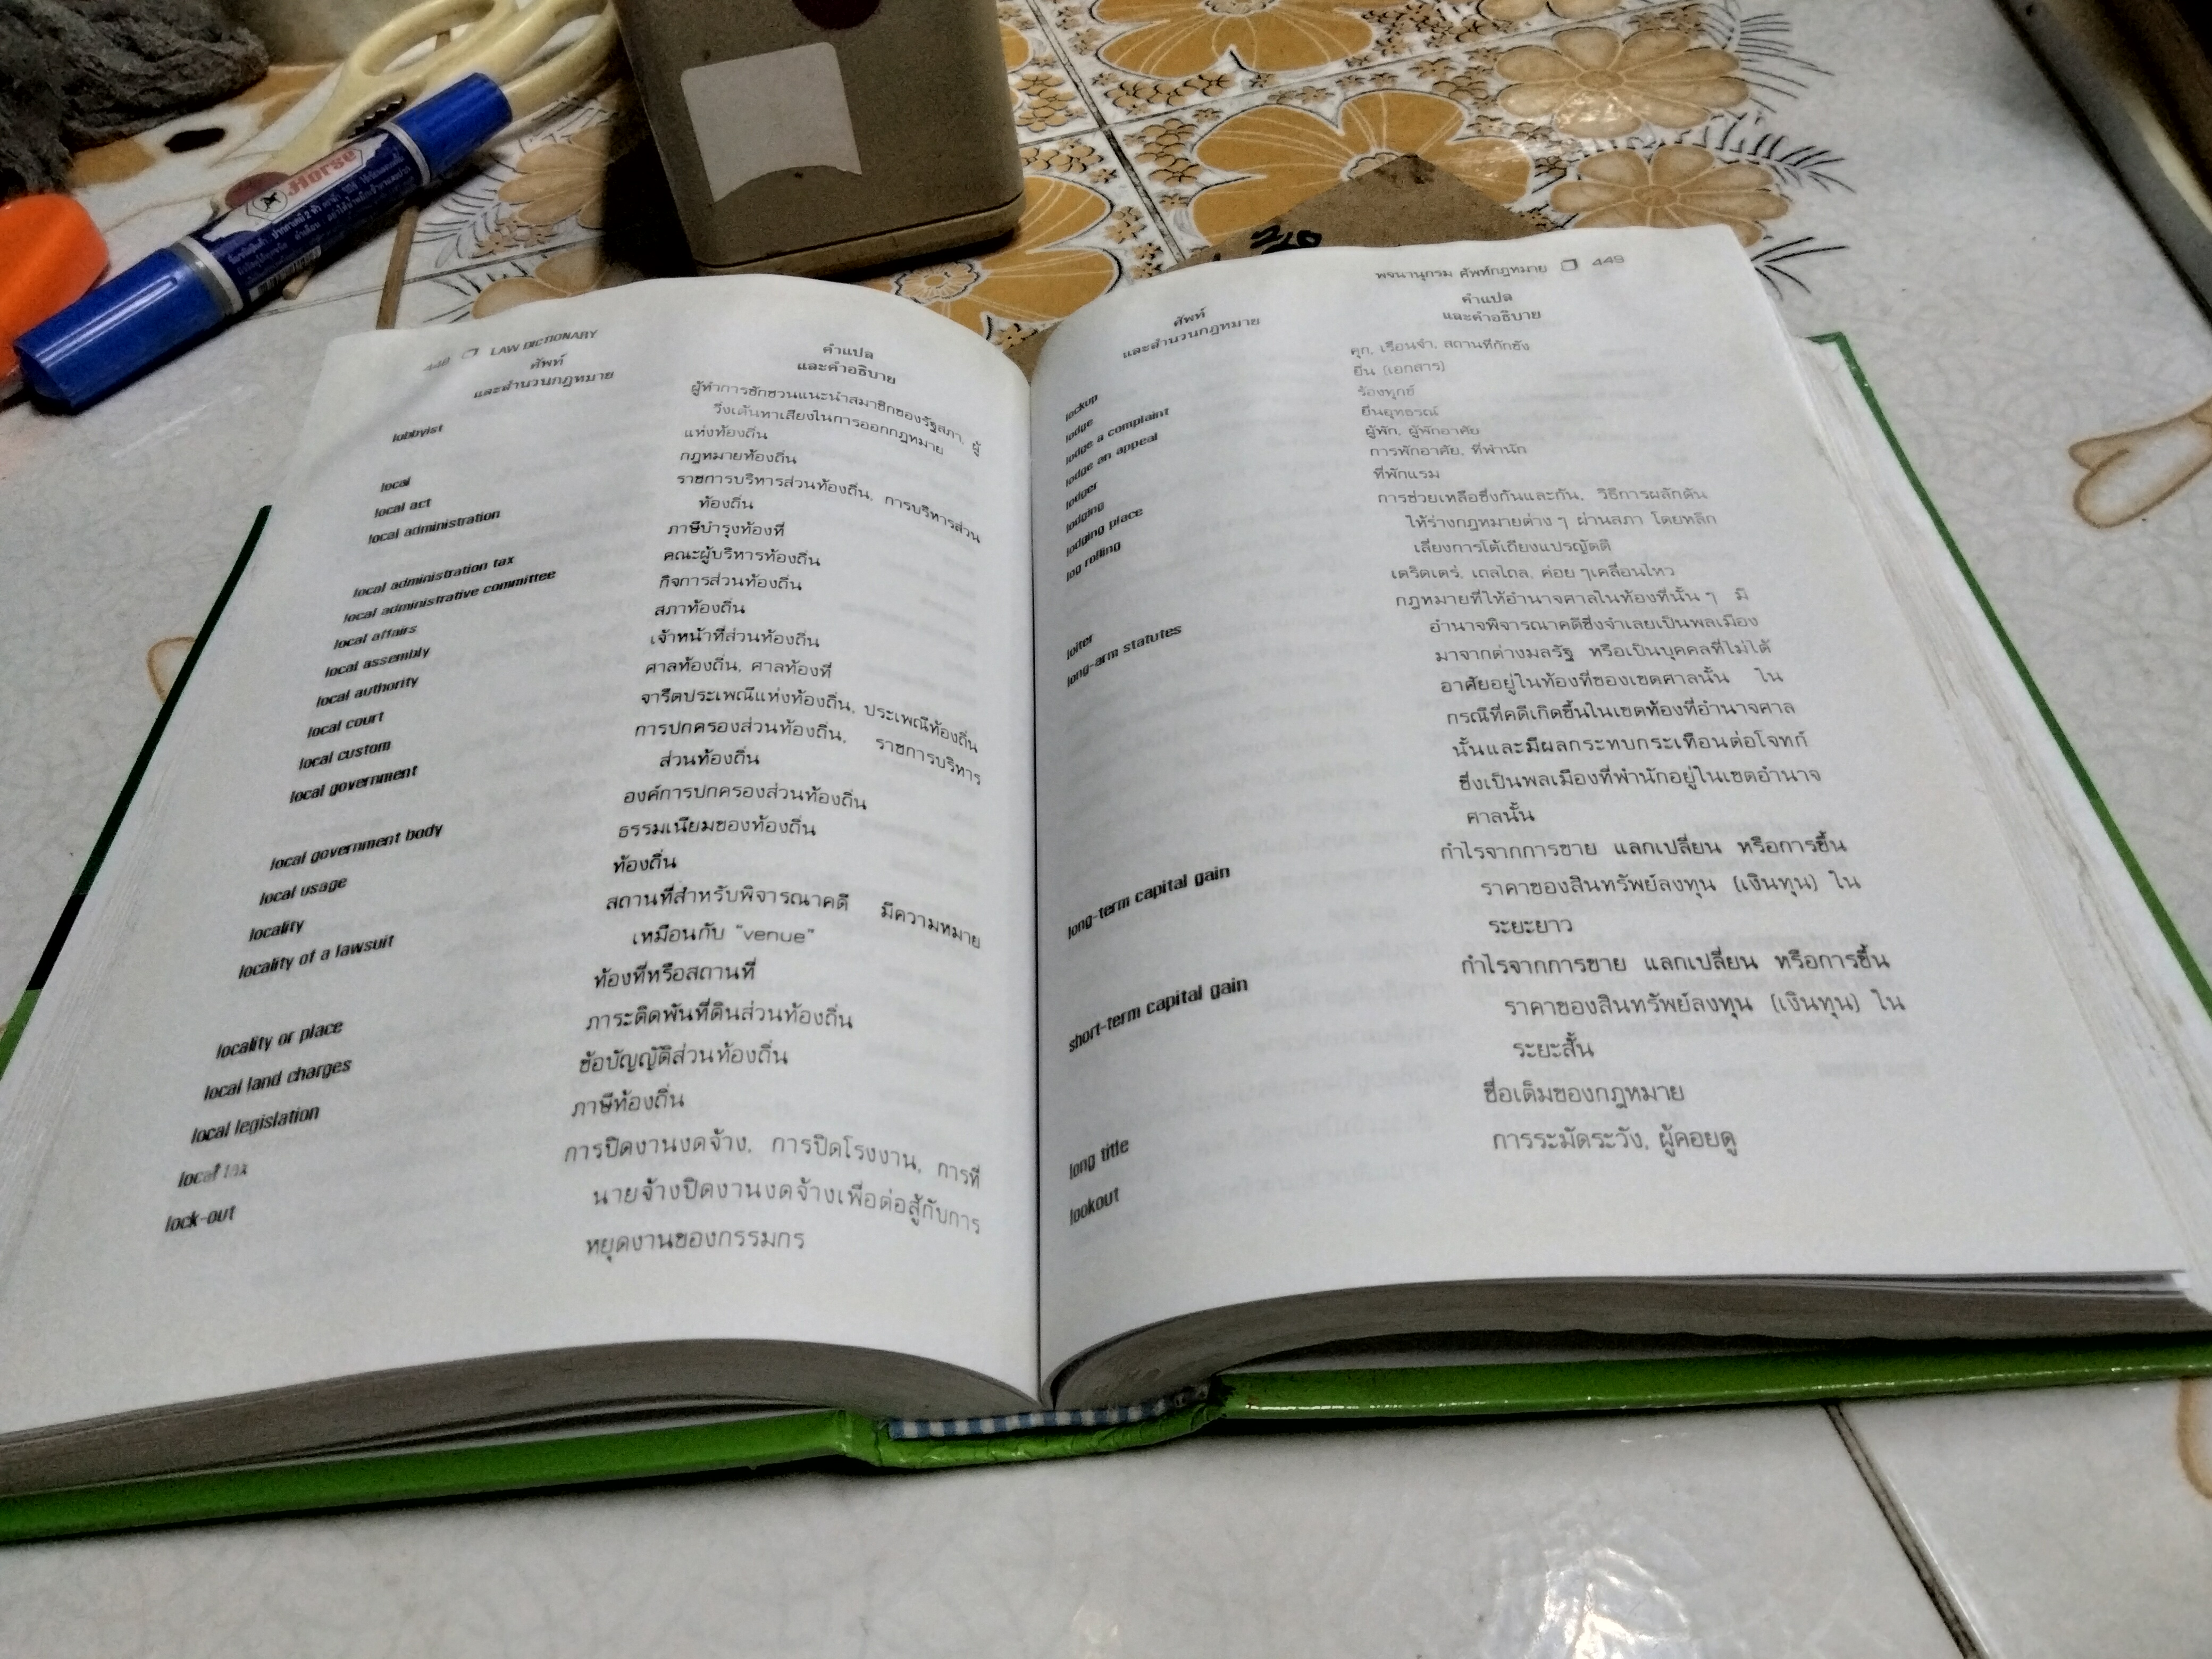 Horse
448 LAW DICTIONARY
ศัพท์
และสำนวนกฎหมาย
คำแปล
และคำอธิบาย
lobbyist
ผู้ทำการชักชวนแนะนำสมาชิกของรัฐสภา, ผู้
วิ่งเต้นหาเสียงในการออกกฎหมาย
local
แห่งท้องถิ่น
local act
กฎหมายท้องถิ่น
local administration
ราชการบริหารส่วนท้องถิ่น, การบริหารส่วน
ท้องถิ่น
local administration tax
ภาษีบำรุงท้องที่
local administrative committee
คณะผู้บริหารท้องถิ่น
local affairs
กิจการส่วนท้องถิ่น
local assembly
สภาท้องถิ่น
local authority
เจ้าหน้าที่ส่วนท้องถิ่น
local court
ศาลท้องถิ่น, ศาลท้องที่
local custom
จารีตประเพณีแห่งท้องถิ่น, ประเพณีท้องถิ่น
local government
การปกครองส่วนท้องถิ่น, ราชการบริหาร
ส่วนท้องถิ่น
local government body
องค์การปกครองส่วนท้องถิ่น
local usage
ธรรมเนียมของท้องถิ่น
locality
ท้องถิ่น
locality of a lawsuit
สถานที่สำหรับพิจารณาคดี มีความหมาย
เหมือนกับ "venue"
locality or place
ท้องที่หรือสถานที่
local land charges
ภาระติดพันที่ดินส่วนท้องถิ่น
local legislation
ข้อบัญญัติส่วนท้องถิ่น
local tax
ภาษีท้องถิ่น
lock-out
การปิดงานงดจ้าง, การปิดโรงงาน, การที่
นายจ้างปิดงานงดจ้างเพื่อต่อสู้กับการ
หยุดงานของกรรมกร
พจนานุกรม ศัพท์กฎหมาย 449
ศัพท์
และสำนวนกฎหมาย
คำแปล
และคำอธิบาย
lockup
คุก, เรือนจำ, สถานที่กักขัง
lodge
ยื่น (เอกสาร)
lodge a complaint
ร้องทุกข์
lodge an appeal
ยื่นอุทธรณ์
lodger
ผู้พัก, ผู้พักอาศัย
lodging
การพักอาศัย, ที่พำนัก
lodging place
ที่พักแรม
log rolling
การช่วยเหลือซึ่งกันและกัน, วิธีการผลักดัน
ให้ร่างกฎหมายต่าง ๆ ผ่านสภา โดยหลีก
เลี่ยงการโต้เถียงแปรญัตติ
loiter
เตร็ดเตร่, เถลไถล, ค่อย ๆเคลื่อนไหว
long-arm statutes
กฎหมายที่ให้อำนาจศาลในท้องที่นั้น ๆ มี
อำนาจพิจารณาคดีซึ่งจำเลยเป็นพลเมือง
มาจากต่างมลรัฐ หรือเป็นบุคคลที่ไม่ได้
อาศัยอยู่ในท้องที่ของเขตศาลนั้น ใน
กรณีที่คดีเกิดขึ้นในเขตท้องที่อำนาจศาล
นั้นและมีผลกระทบกระเทือนต่อโจทก์
ซึ่งเป็นพลเมืองที่พำนักอยู่ในเขตอำนาจ
ศาลนั้น
long-term capital gain
กำไรจากการขาย แลกเปลี่ยน หรือการขึ้น
ราคาของสินทรัพย์ลงทุน (เงินทุน) ใน
ระยะยาว
short-term capital gain
กำไรจากการขาย แลกเปลี่ยน หรือการขึ้น
ราคาของสินทรัพย์ลงทุน (เงินทุน) ใน
ระยะสั้น
long title
ชื่อเต็มของกฎหมาย
lookout
การระมัดระวัง, ผู้คอยดู